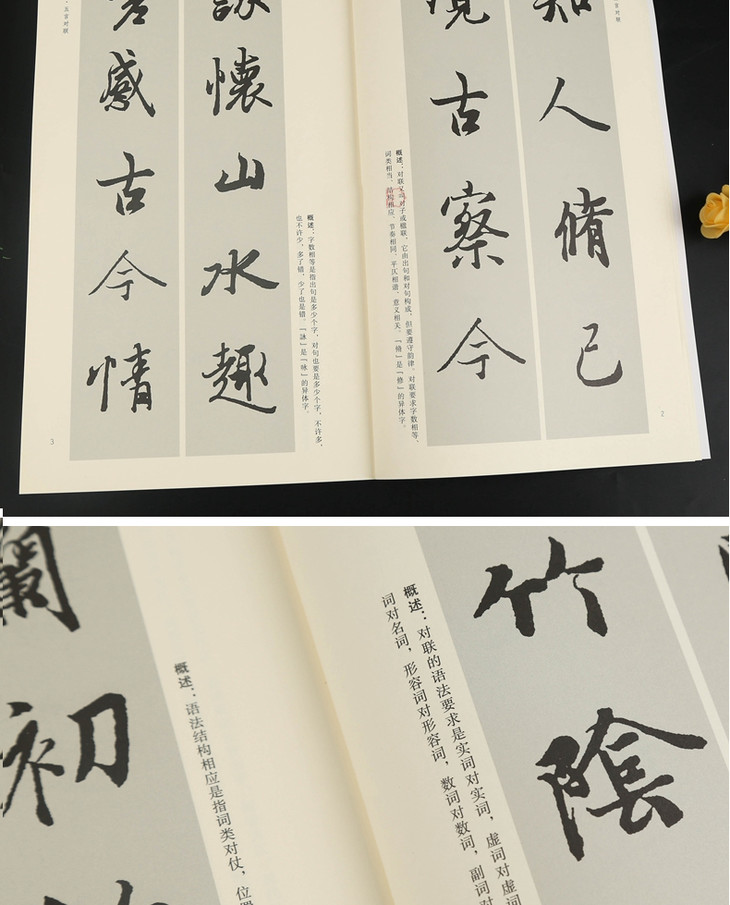 知人脩己
古察今
概述：对联又叫对子或楹联，它由出句和对句构成，但要遵守韵律，对联要求字数相等、
词类相当、结构相应、节奏相同、平仄相谐、意义相关。「脩」是「修」的异体字。
2
概述：字数相等是指出句是多少个字，对句也要是多少个字，不许多，
也不许少，多了错，少了也是错。「詠」是「咏」的异体字。
詠懷山水趣
感古今情
五言对联
3
竹陰
概述：对联的语法要求是实词对实词，虚词对虚词
词对名词，形容词对形容词，数词对数词，副词对
概述：语法结构相应是指词类对仗，位置
初